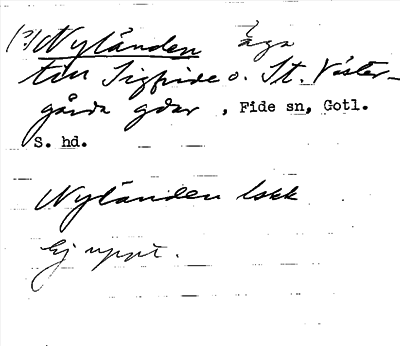 (?) Nyländen äga
till Sigfride o. St. Väster-
gårda gdar, Fide sn, Gotl.
S. hd.
Nyländen lskk
Ej uppt.